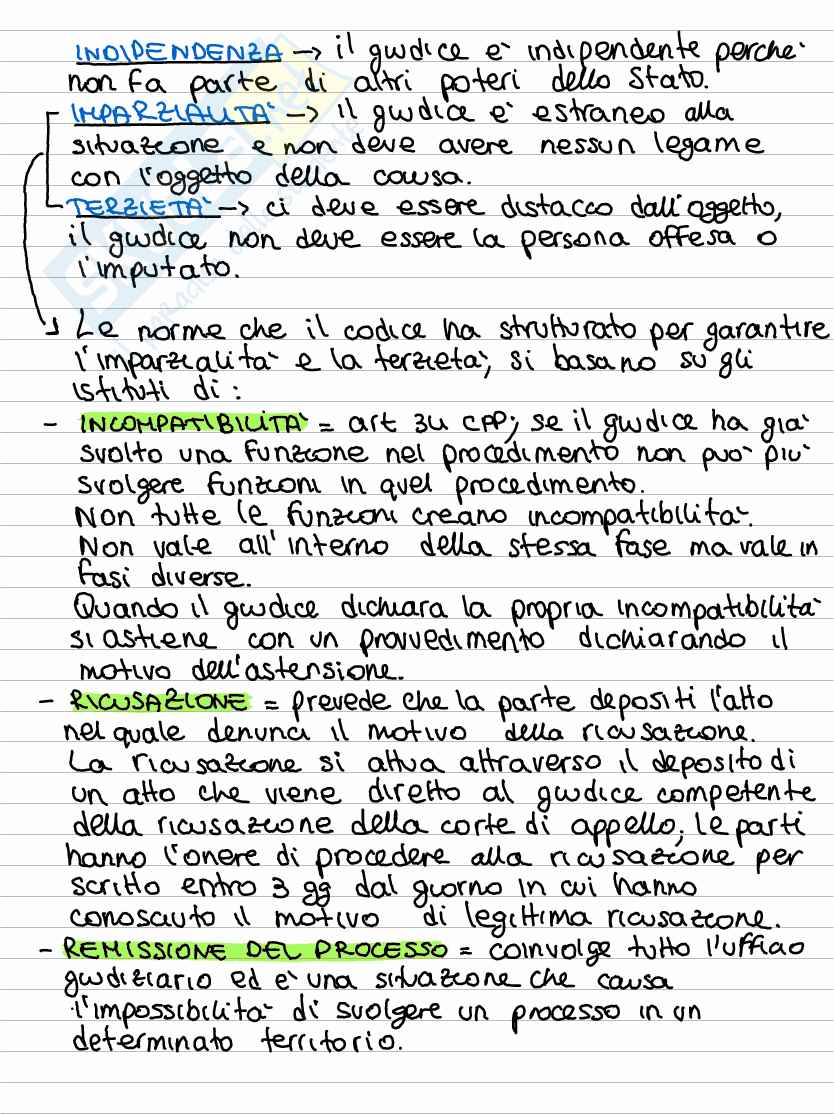 INDIPENDENZA → il giudice e' indipendente perche'
non fa parte di altri poteri dello Stato.
IMPARZIALITA' → il giudice e' estraneo alla
situazione e non deve avere nessun legame
con l'oggetto della causa.
TERZIETA' → ci deve essere distacco dall'oggetto,
il giudice non deve essere la persona offesa o
l'imputato.
Le norme che il codice ha strutturato per garantire
l'imparzialita' e la terzieta', si basano su gli
istituti di:
- INCOMPATIBILITA' = art 34 CPP; se il giudice ha gia'
svolto una funzione nel procedimento non puo' piu'
svolgere funzioni in quel procedimento.
Non tutte le funzioni creano incompatibilita'.
Non vale all'interno della stessa fase ma vale in
fasi diverse.
Quando il giudice dichiara la propria incompatibilita'
si astiene con un provvedimento dichiarando il
motivo dell'astensione.
- RICUSAZIONE = prevede che la parte depositi l'atto
nel quale denunci il motivo della ricusazione.
La ricusazione si attua attraverso il deposito di
un atto che viene diretto al giudice competente
della ricusazione della corte di appello; le parti
hanno l'onere di procedere alla ricusazione per
scritto entro 3 gg dal giorno in cui hanno
conosciuto il motivo di legittima ricusazione.
- REMISSIONE DEL PROCESSO = coinvolge tutto l'ufficio
giudiziario ed e' una situazione che causa
l'impossibilita' di svolgere un processo in un
determinato territorio.